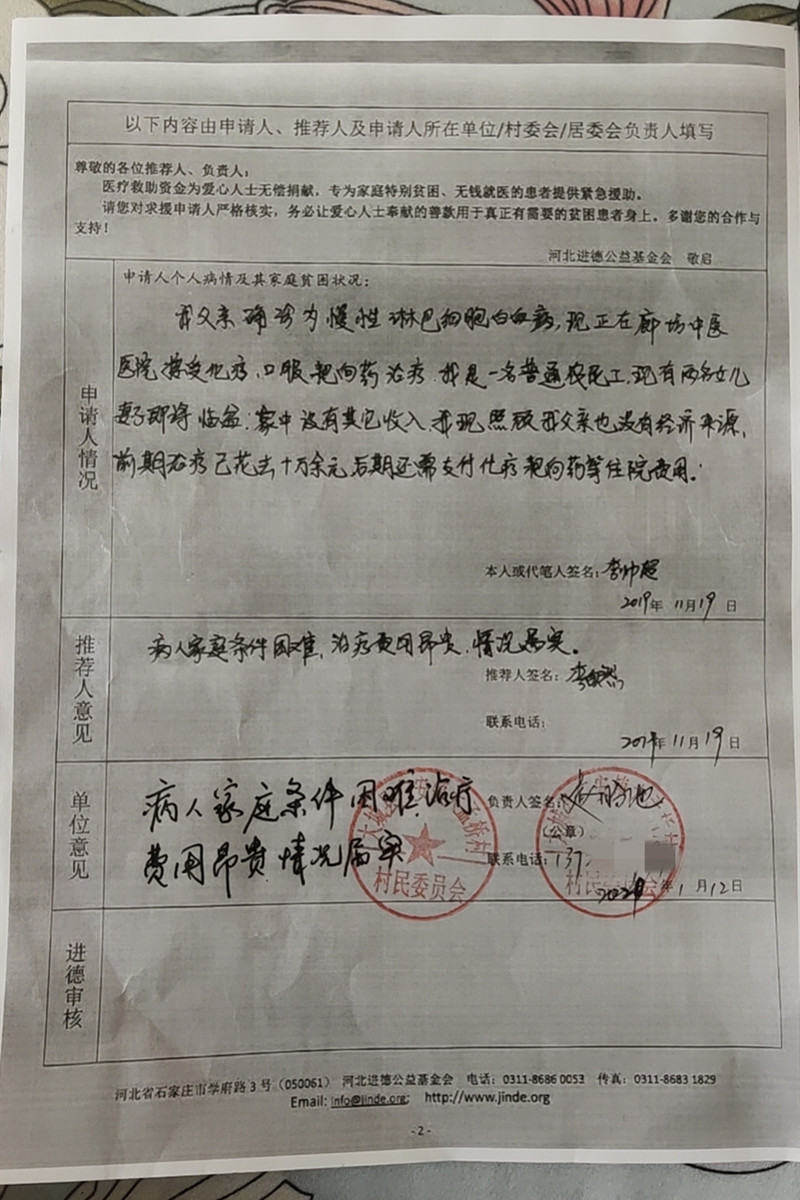 以下内容由申请人、推荐人及申请人所在单位/村委会/居委会负责人填写
尊敬的各位推荐人、负责人：
医疗救助资金为爱心人士无偿捐献，专为家庭特别贫困、无钱就医的患者提供紧急援助。
请您对求援申请人严格核实，务必让爱心人士奉献的善款用于真正有需要的贫困患者身上。多谢您的合作与
支持！
河北进德公益基金会 敬启
申请人情况
申请人个人病情及其家庭贫困状况：
我父亲确诊为慢性淋巴细胞白血病，现正在廊坊中医
医院接受化疗，口服靶向药治疗。我是一名普通农民工，现有两名女儿
妻子即将临盆；家中没有其它收入，我现照顾我父亲也没有经济来源，
前期治疗已花去十万余元，后期还需支付化疗靶向药等住院费用。
本人或代笔人签名：李帅超
2019年 11月19日
推荐人意见
病人家庭条件困难，治疗费用昂贵，情况属实。
推荐人签名：李
联系电话：
年11月19日
单位意见
病人家庭条件困难，治疗
费用昂贵情况属实
负责人签名：
（公章）
联系电话：137
年1月12日
村民委员会
村民委员会
进德审核
河北省石家庄市学府路3号（050061） 河北进德公益基金会 电话：0311-8686 0053 传真：0311-8683 1829
Email: info@jinde.org; http://www.jinde.org
- 2 -